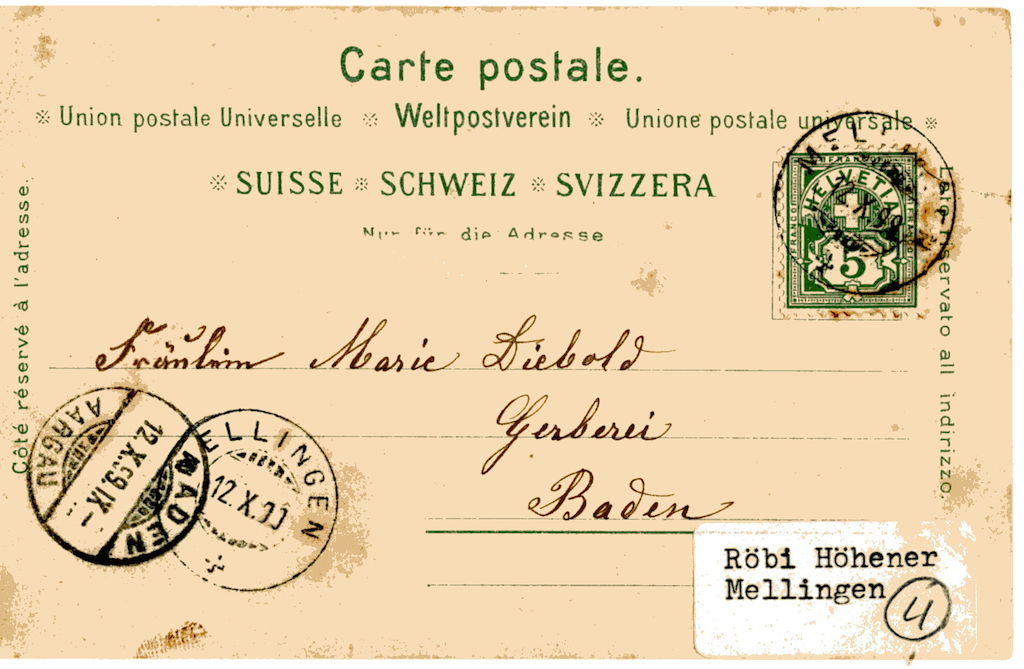 Carte postale.
※ Union postale Universelle ※ Weltpostverein ※ Unione postale universale ※
※ SUISSE ※ SCHWEIZ ※ SVIZZERA
Nur für die Adresse
Côté réservé à l'adresse.
Lato riservato all indirizzo.
FRANCO
HELVETIA
FRANCO
FRANCO
5
MELLINGEN
Fräulein Marie Diebold
Gerberei
Baden
AARGAU
12.X.99.IX-
BADEN
MELLINGEN
12.X.99
Röbi Höhener
Mellingen
4